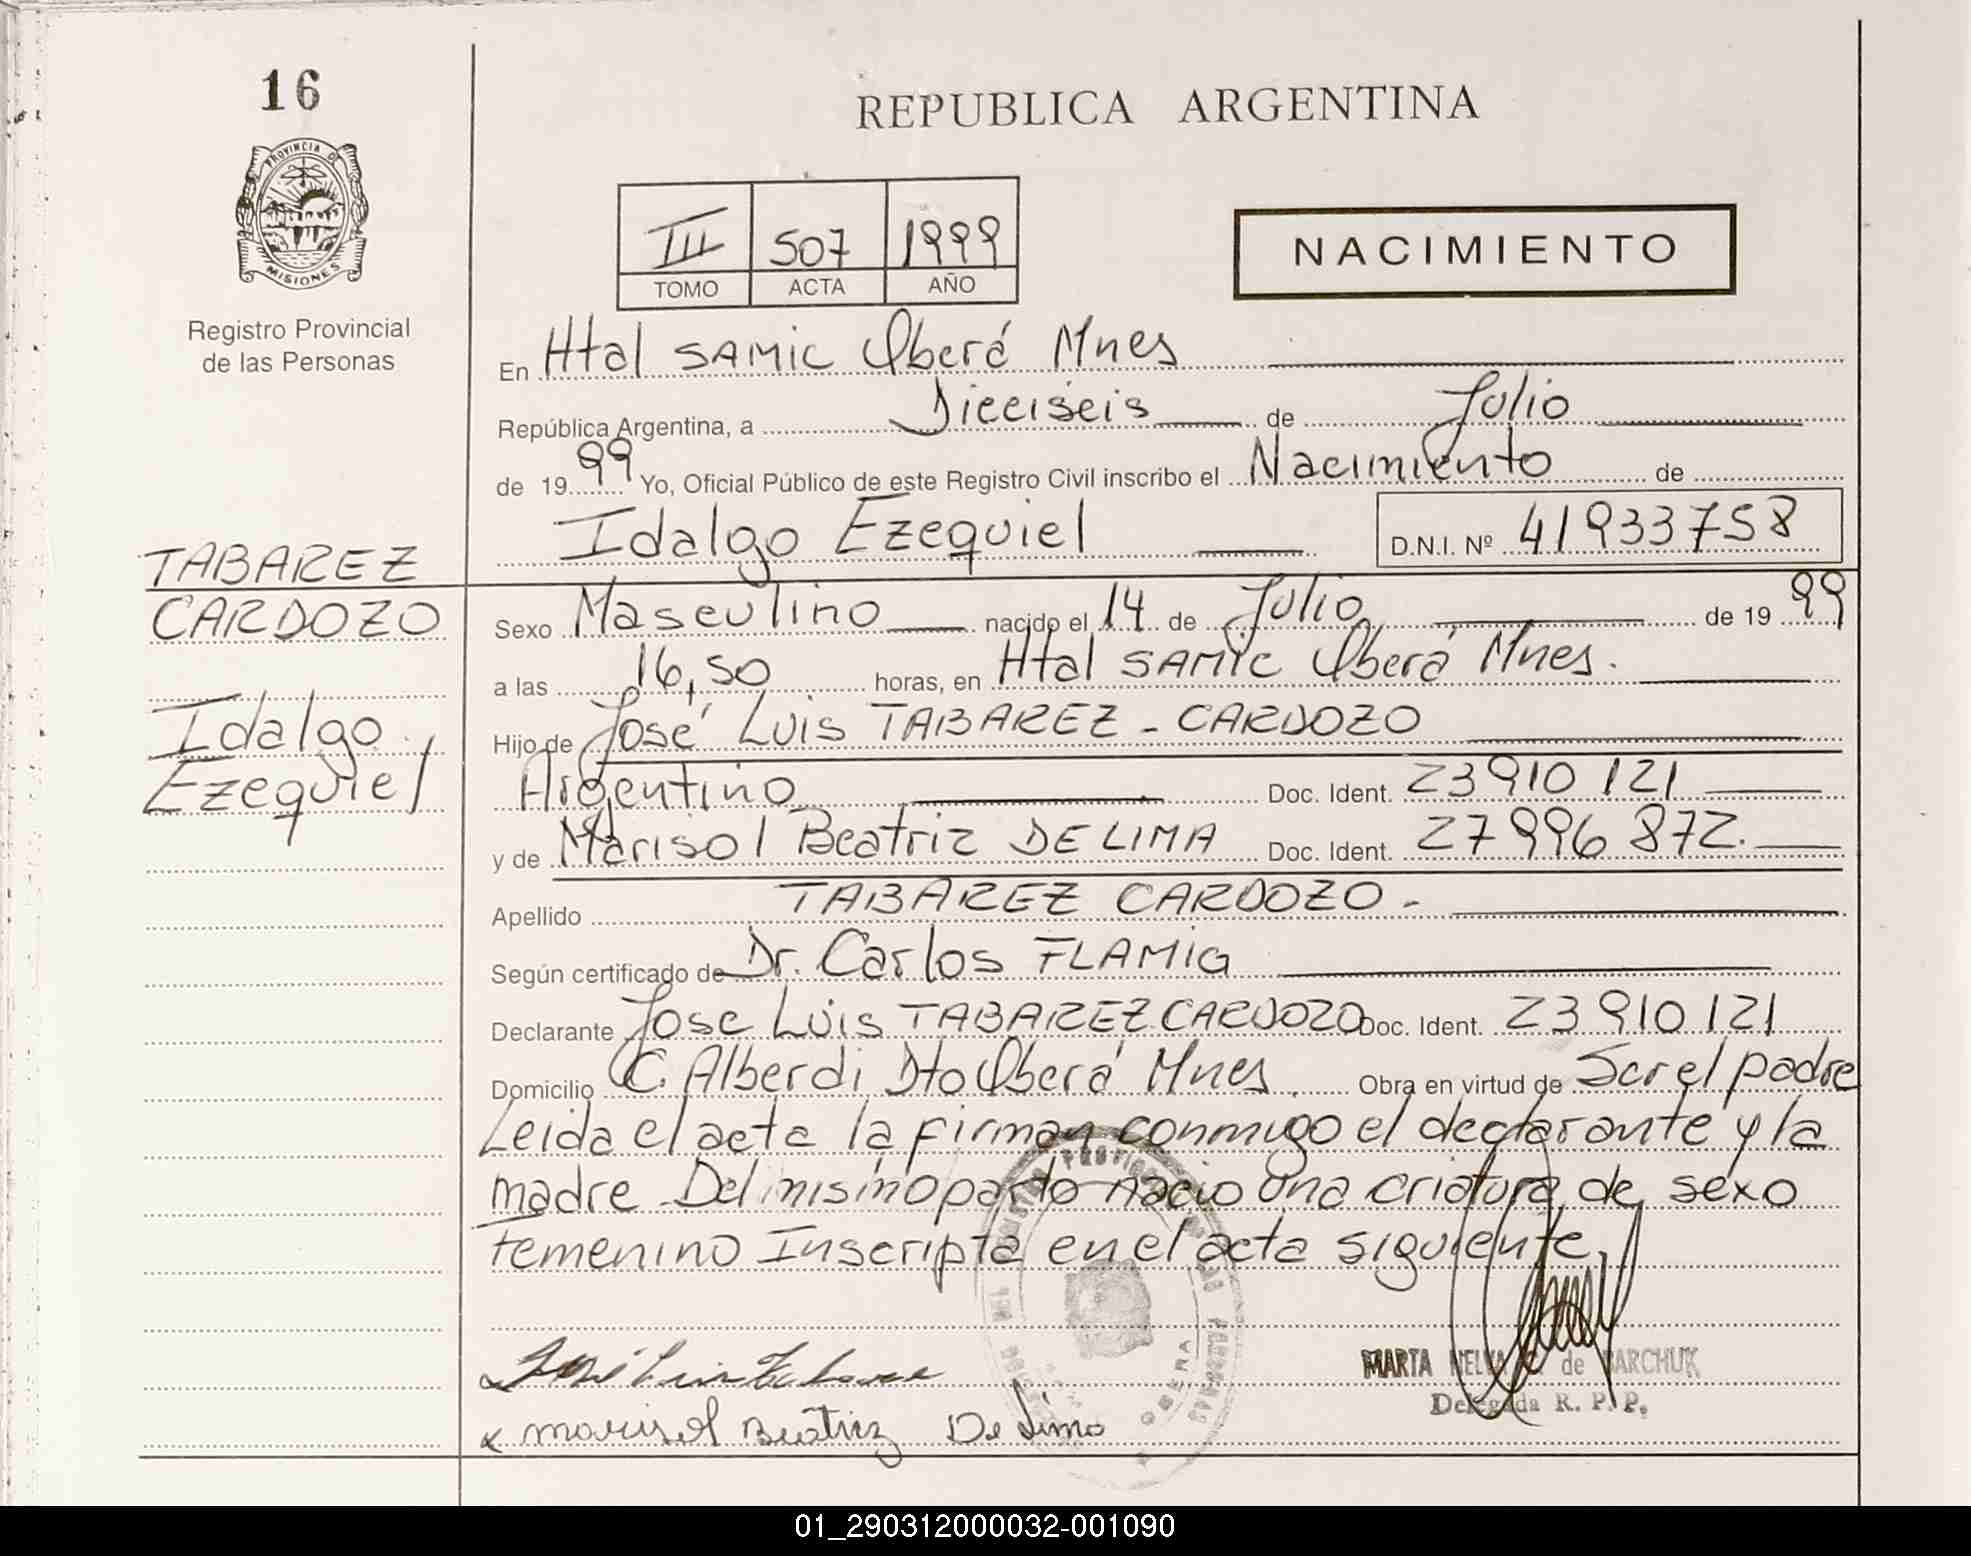 16
PROVINCIA DE
MISIONES
Registro Provincial
de las Personas
REPUBLICA ARGENTINA
III 507 1999
TOMO ACTA AÑO
NACIMIENTO
En Htal SAMIC Oberá Mnes
República Argentina, a Dieciseis de Julio
de 1999 Yo, Oficial Público de este Registro Civil inscribo el Nacimiento de
Idalgo Ezequiel D.N.I. Nº 41933758
TABAREZ
CARDOZO
Idalgo
Ezequiel
Sexo Masculino nacido el 14 de Julio de 1999
a las 16,50 horas, en Htal SAMIC Oberá Mnes.
Hijo de José Luis TABAREZ - CARDOZO
Argentino Doc. Ident. 23910 121
y de Marisol Beatriz DE LIMA Doc. Ident. 27996 872.
Apellido TABAREZ CARDOZO -
Según certificado de Dr. Carlos FLAMIG
Declarante Jose Luis TABAREZ CARDOZO Doc. Ident. 23 910 121
Domicilio C. Alberdi Dto Oberá Mnes Obra en virtud de Ser el padre
Leida el acta la firman conmigo el declarante y la
madre Del mismo parto nacio una criatura de sexo
femenino Inscripta en el acta siguiente.
José Luis Tabarez
x Marisol Beatriz De Lima
OBERA
MARTA de BARCHUK
Delegada R. P. P.
01_290312000032-001090